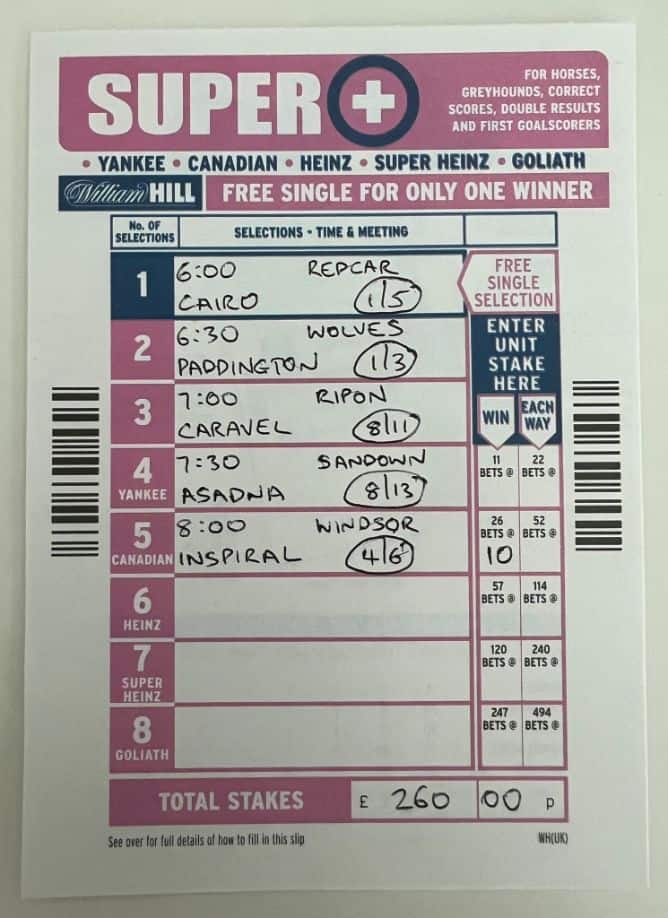 SUPER+
FOR HORSES,
GREYHOUNDS, CORRECT
SCORES, DOUBLE RESULTS
AND FIRST GOALSCORERS
• YANKEE • CANADIAN • HEINZ • SUPER HEINZ • GOLIATH
William HILL FREE SINGLE FOR ONLY ONE WINNER
No. OF
SELECTIONS
SELECTIONS • TIME & MEETING
1
6:00 REDCAR
CAIRO 1/5
FREE
SINGLE
SELECTION
2
6:30 WOLVES
PADDINGTON 1/3
ENTER
UNIT
STAKE
HERE
3
7:00 RIPON
CARAVEL 8/11
WIN
EACH
WAY
4
YANKEE
7:30 SANDOWN
ASADNA 8/13
11
BETS @
22
BETS @
5
CANADIAN
8:00 WINDSOR
INSPIRAL 4/6
26
BETS @
10
52
BETS @
6
HEINZ
57
BETS @
114
BETS @
7
SUPER
HEINZ
120
BETS @
240
BETS @
8
GOLIATH
247
BETS @
494
BETS @
TOTAL STAKES £ 260 00 p
See over for full details of how to fill in this slip
WH(UK)